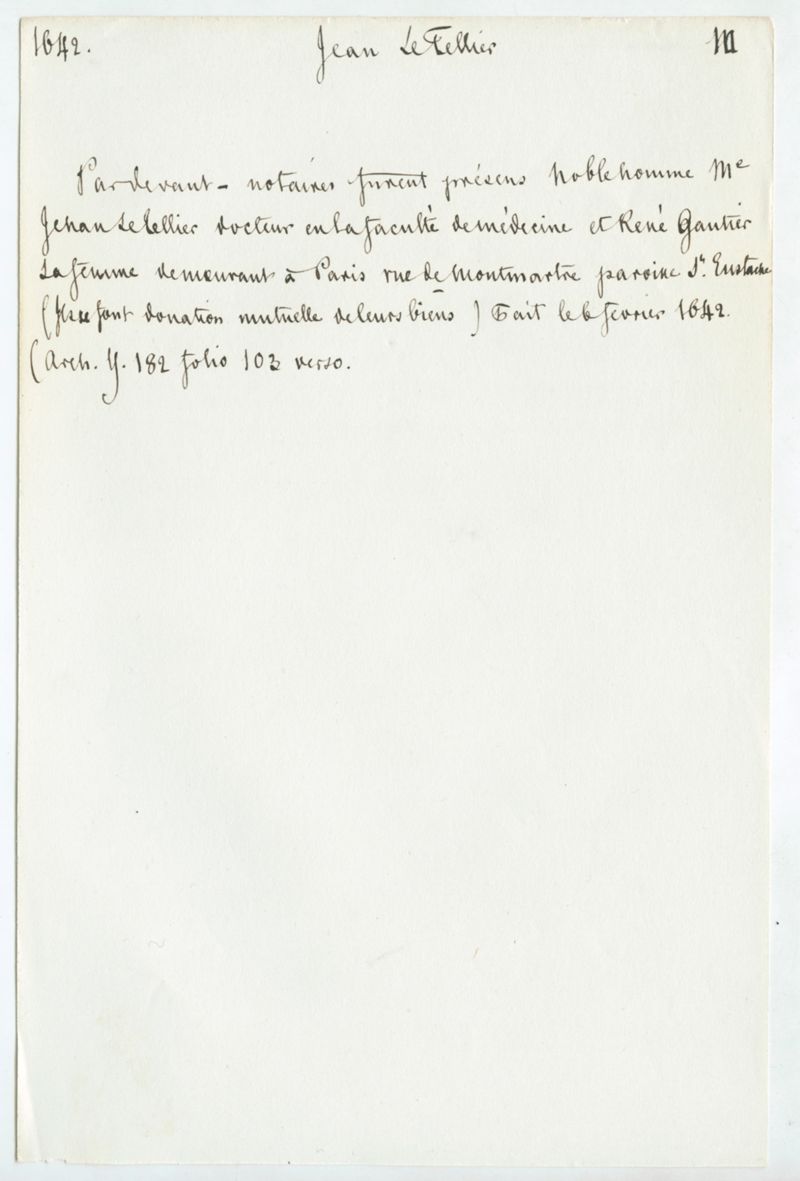 1642. Jean LeTellier M
Pardevant - notaires furent présens Noble homme Me
Jehan Le Tellier docteur en la faculté de médecine et René Gautier
sa femme demeurant à Paris rue de Montmartre paroisse St. Eustache
(Ils se font donation mutuelle de leurs biens) Fait le 6 février 1642.
(Arch. Y. 182 folio 103 verso.